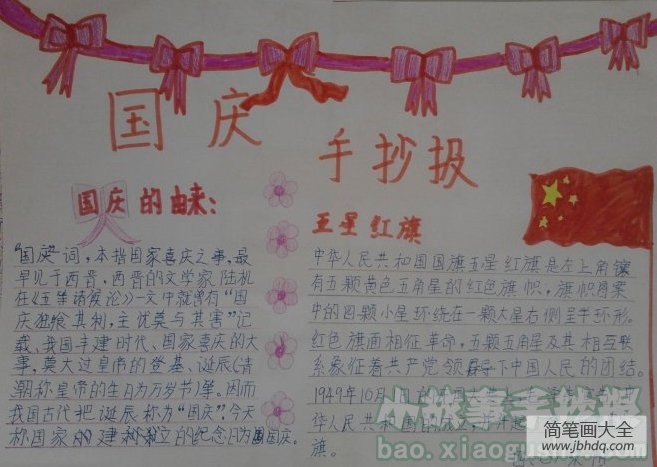 国庆
手抄报
国庆的由来:
"国庆"词,本指国家喜庆之事,最
早见于西晋,西晋的文学家陆机
在《五等诸侯论》一文中就曾有"国
庆独飨其利,主忧莫与其害"记
载、我国丰建时代、国家喜庆的大
事,莫大过皇帝的登基、诞辰(清
潮称皇帝的生日为万岁节)等。因而
我国古代把诞辰称为"国庆",今天
称国家的建立的纪念日为国国庆。
五星红旗
中华人民共和国国旗五星红旗是左上角镶
有五颗黄色五角星的红色旗帜,旗帜图案
中的四颗小星环绕在一颗大星右侧呈半环形。
红色旗面相征革命,五颗五角星及其相互联
系象征着共产党领导下中国人民的团结。
1949年10月1
华人民共和国的
旗。
小故事手抄报
bao.xiaogushi
简笔画大全
www.jbhdq.com